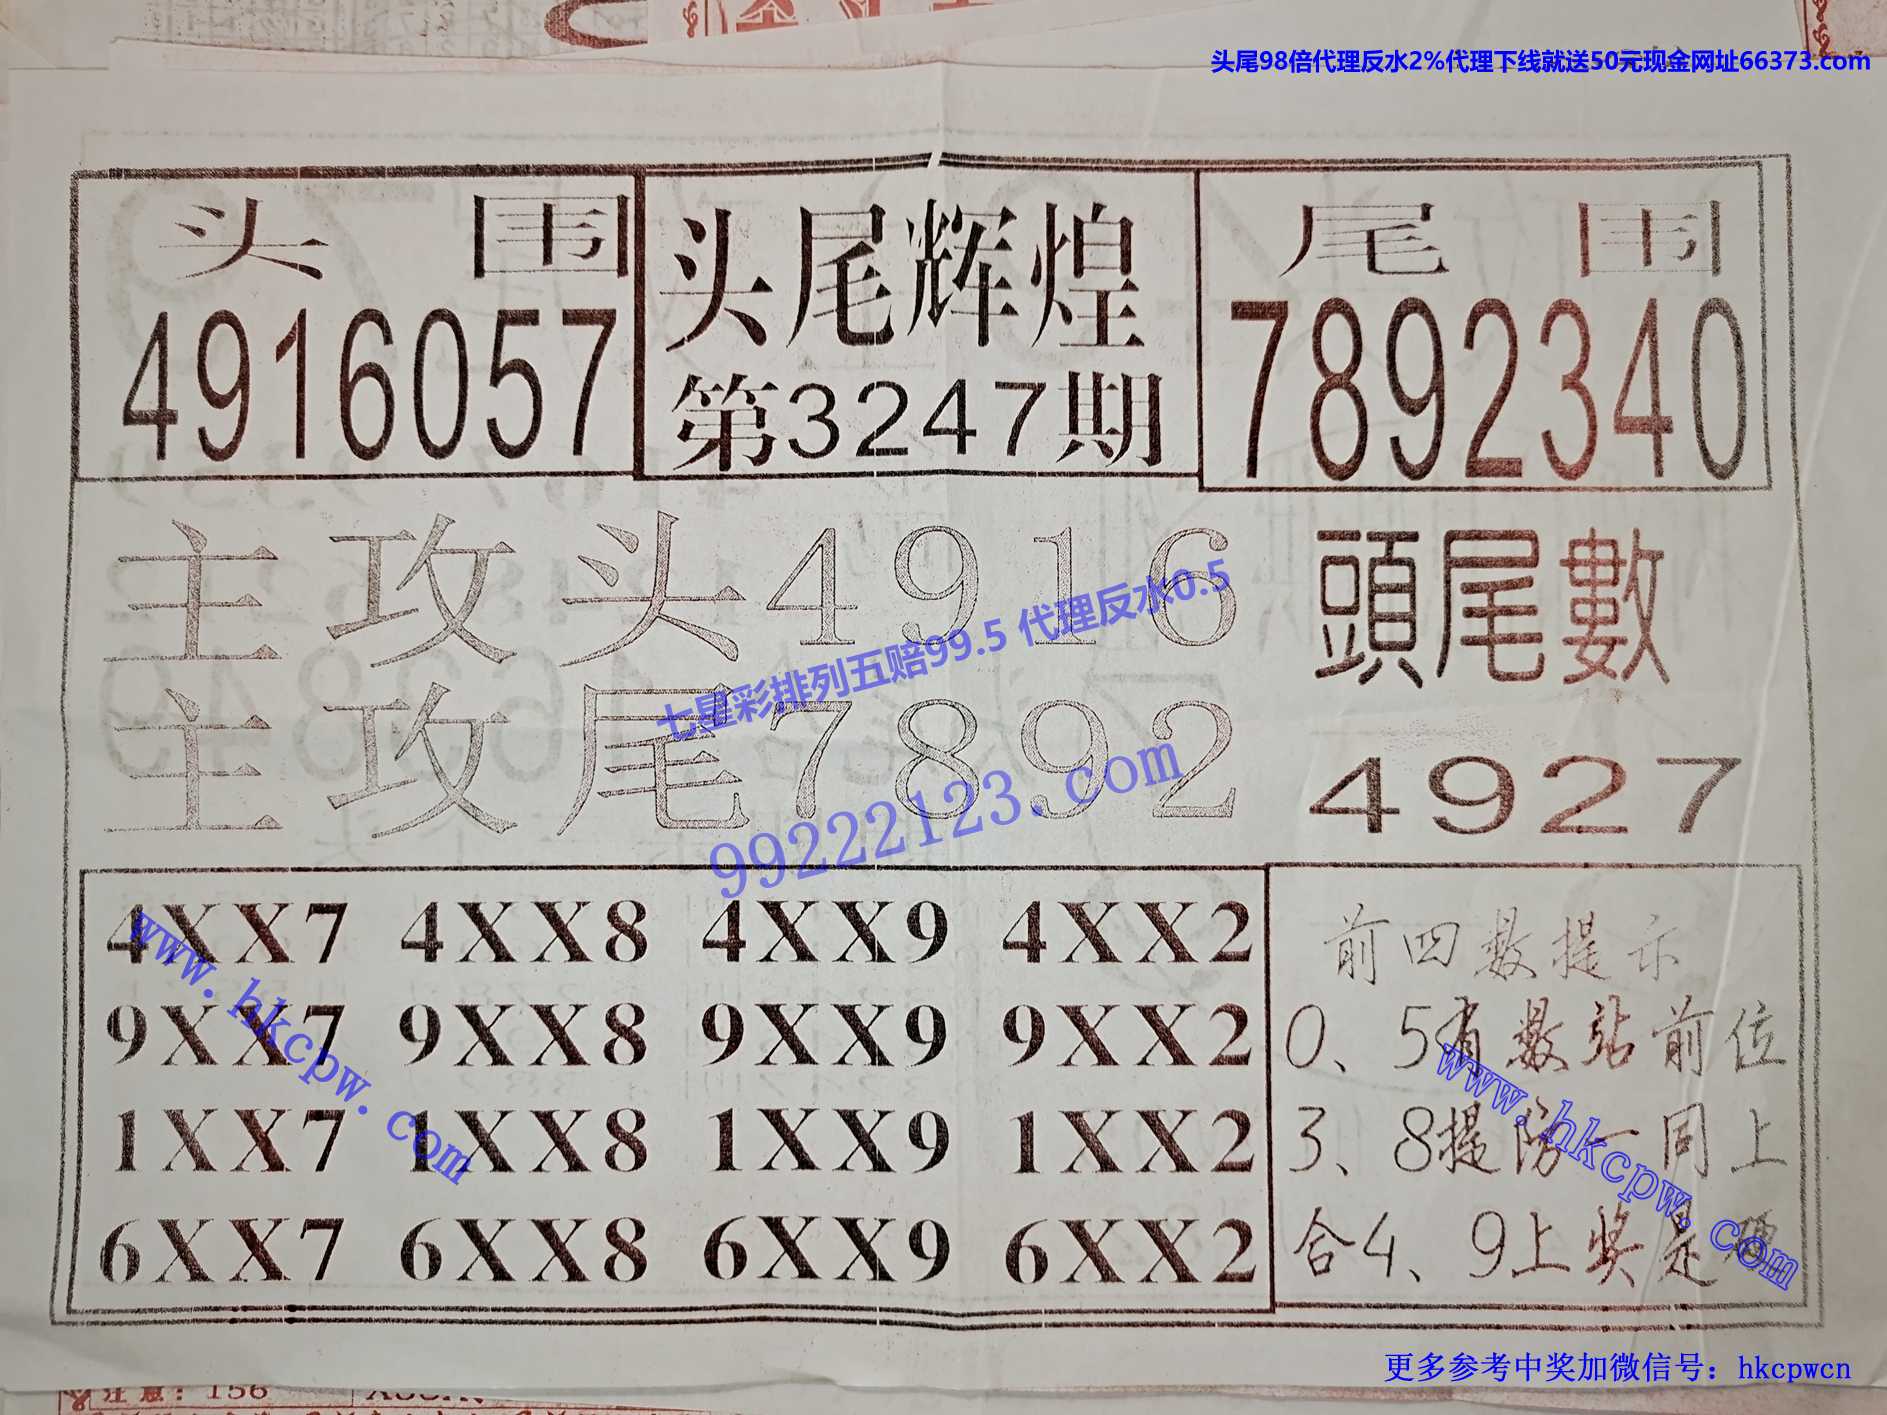 头尾98倍代理反水2%代理下线就送50元现金网址66373.com
头围
4916057
头尾辉煌
第3247期
尾围
7892340
主攻头4916
主攻尾7892
頭尾數
4927
七星彩排列五赔99.5 代理反水0.5
99222123.com
4XX7 4XX8 4XX9 4XX2
9XX7 9XX8 9XX9 9XX2
1XX7 1XX8 1XX9 1XX2
6XX7 6XX8 6XX9 6XX2
前四数提示
0、5有数站前位
3、8提防一同上
合4、9上奖是
www.hkcpw.com
www.hkcpw.com
更多参考中奖加微信号：hkcpwcn
注意：156